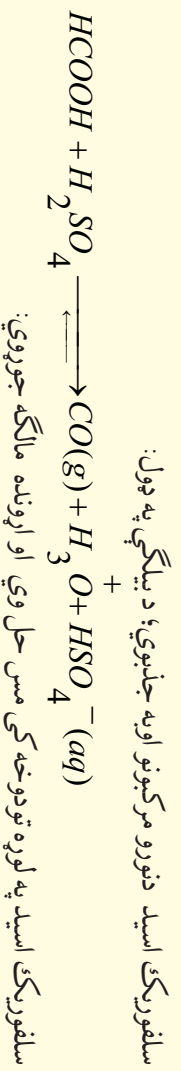 سلفوریک اسید دنورو مرکبونو اوبه جذبوي؛ د بیلګې په ډول:
HCOOH + H₂SO₄ ⇄ CO(g) + H₃O⁺ + HSO₄⁻(aq)
سلفوریک اسید په لوړه تودوخه کې مس حل وي او اړونده مالګه جوړوي: